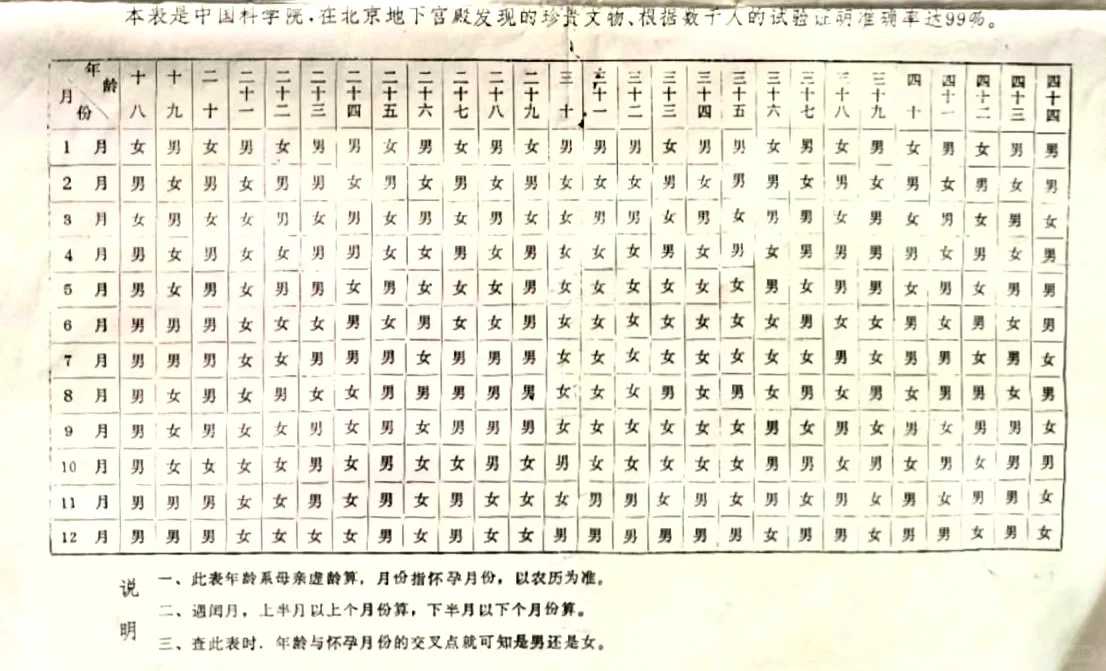 本表是中国科学院,在北京地下宫殿发现的珍贵文物、根据数千人的试验证明准确率达99%。
年龄 月份 十八 十九 二十 二十一 二十二 二十三 二十四 二十五 二十六 二十七 二十八 二十九 三十 三十一 三十二 三十三 三十四 三十五 三十六 三十七 三十八 三十九 四十 四十一 四十二 四十三 四十四
1 月 女 男 女 男 女 男 男 女 男 女 男 女 男 男 男 女 男 男 女 男 女 男 女 男 女 男 男
2 月 男 女 男 女 男 男 女 男 女 男 女 男 女 女 女 男 女 男 男 女 男 女 男 女 男 女 男
3 月 女 男 女 女 男 女 男 女 男 女 男 女 女 男 男 女 男 女 男 男 女 男 女 男 女 男 女
4 月 男 女 男 女 女 男 男 女 女 男 女 男 女 女 女 男 女 男 女 男 男 男 男 女 男 女 男
5 月 男 女 男 女 男 男 女 男 女 女 女 男 女 女 女 女 女 女 男 女 男 男 女 男 女 男 男
6 月 男 男 男 女 女 女 男 女 男 女 女 男 女 女 女 女 女 女 女 男 女 女 男 女 男 女 男
7 月 男 男 男 女 女 男 男 男 女 男 男 男 女 女 女 女 女 女 女 女 男 女 男 男 女 男 女
8 月 男 女 男 女 男 女 女 男 男 男 男 男 女 女 女 男 女 男 女 男 女 男 女 男 男 女 男
9 月 男 女 男 女 女 男 女 男 女 男 男 男 女 女 女 女 女 女 男 女 男 女 男 女 男 男 女
10 月 男 女 女 女 女 男 女 男 女 女 男 女 男 女 女 女 女 女 男 男 女 男 女 男 女 男 男
11 月 男 男 男 女 女 男 女 男 女 男 女 女 女 男 男 女 男 女 男 女 男 女 男 女 男 男 女
12 月 男 男 男 女 女 女 女 男 女 男 女 女 男 男 男 男 男 男 女 男 男 女 男 男 女 男 女
说明
一、此表年龄系母亲虚龄算,月份指怀孕月份,以农历为准。
二、遇闰月,上半月以上个月份算,下半月以下个月份算。
三、查此表时.年龄与怀孕月份的交叉点就可知是男还是女。